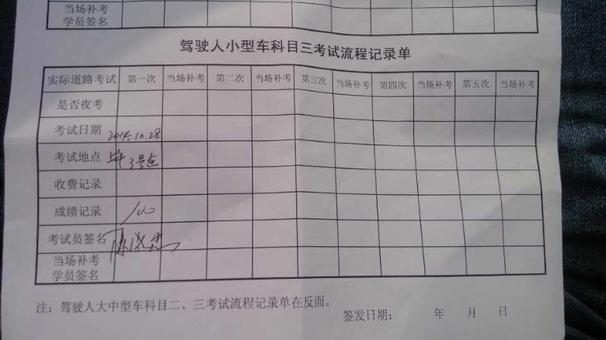 当场补考
学员签名
驾驶人小型车科目三考试流程记录单
实际道路考试 第一次 当场补考 第二次 当场补考 第三次 当场补考 第四次 当场补考 第五次 当场补考
是否夜考
考试日期 10.28
考试地点 3号点
收费记录
成绩记录 100
考试员签名
当场补考
学员签名
注：驾驶人大中型车科目二、三考试流程记录单在反面。
签发日期： 年 月 日